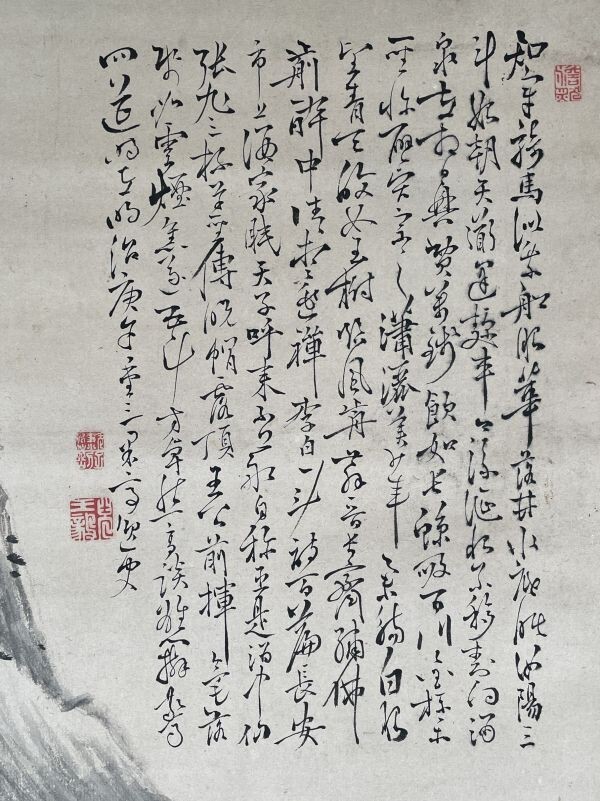 知章騎馬似乘船眼華落井水底眠汝陽三
斗始朝天道逢麴車口流涎恨不移封向酒
泉左相日興費萬錢飲如長鯨吸百川銜杯樂
聖稱避賢宗之瀟灑美少年舉觴白眼
望青天皎如玉樹臨風前蘇晉長齋繡佛
前醉中往往愛逃禪李白一斗詩百篇長安
市上酒家眠天子呼来不上船自称臣是酒中仙
張旭三杯草聖傳脱帽露頂王公前揮毫落
紙如雲煙焦遂五斗方卓然高談雄辯驚
四筵時在明治庚午重三